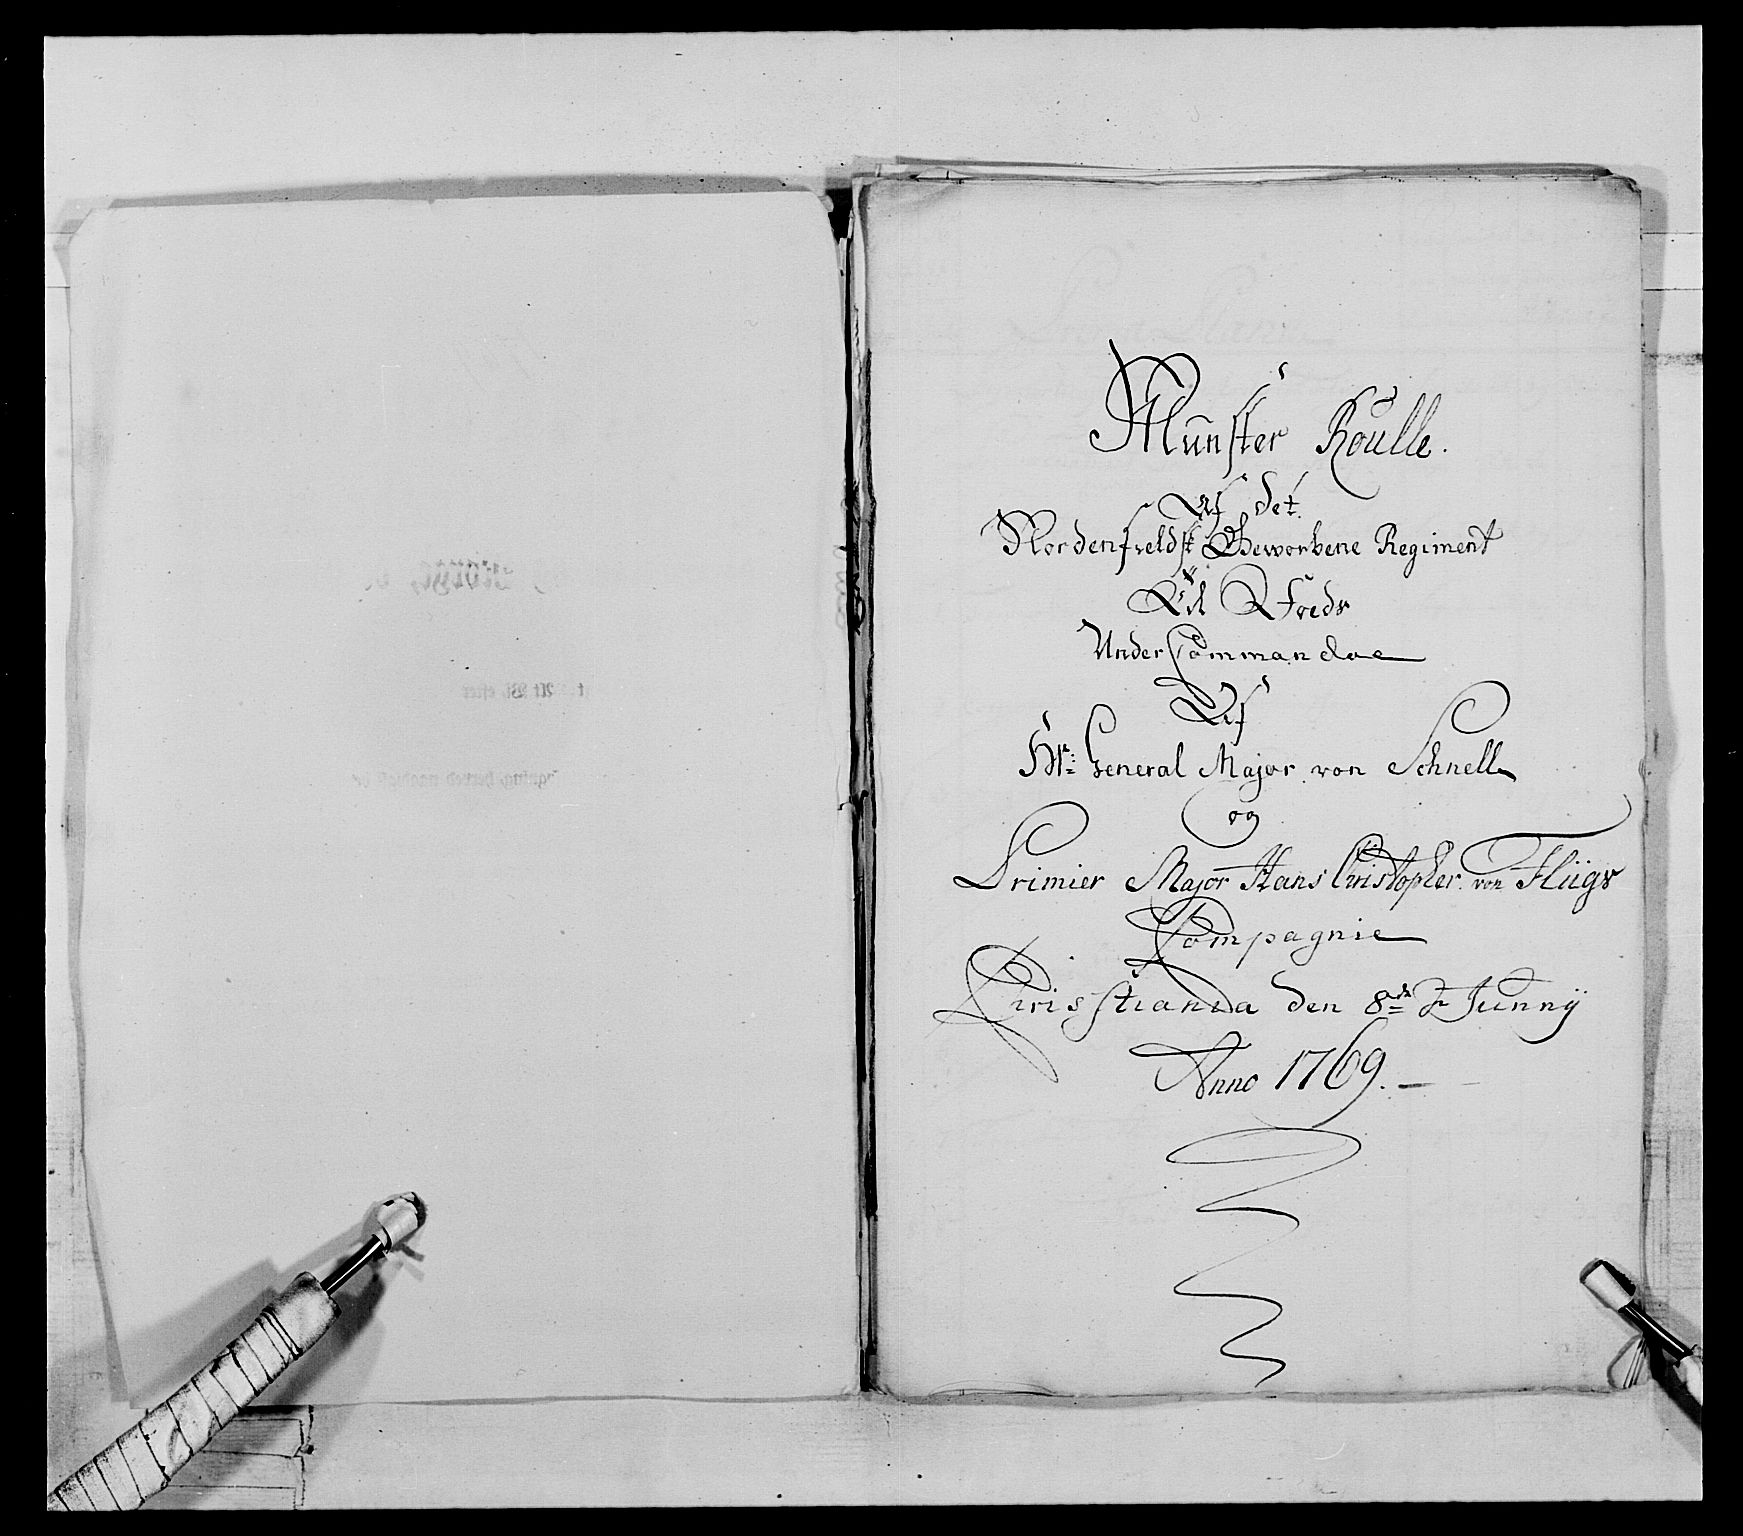 Munster Roulle.
Af det
Nordenfieldsk Geworbene Regiment
Til Foeds
Under Commandoe
Af
Hr: General Major von Schnell
og
Primier Major Hans Christopher von Flügs
Compagnie
Christiania den 8de Junny
Anno 1769.